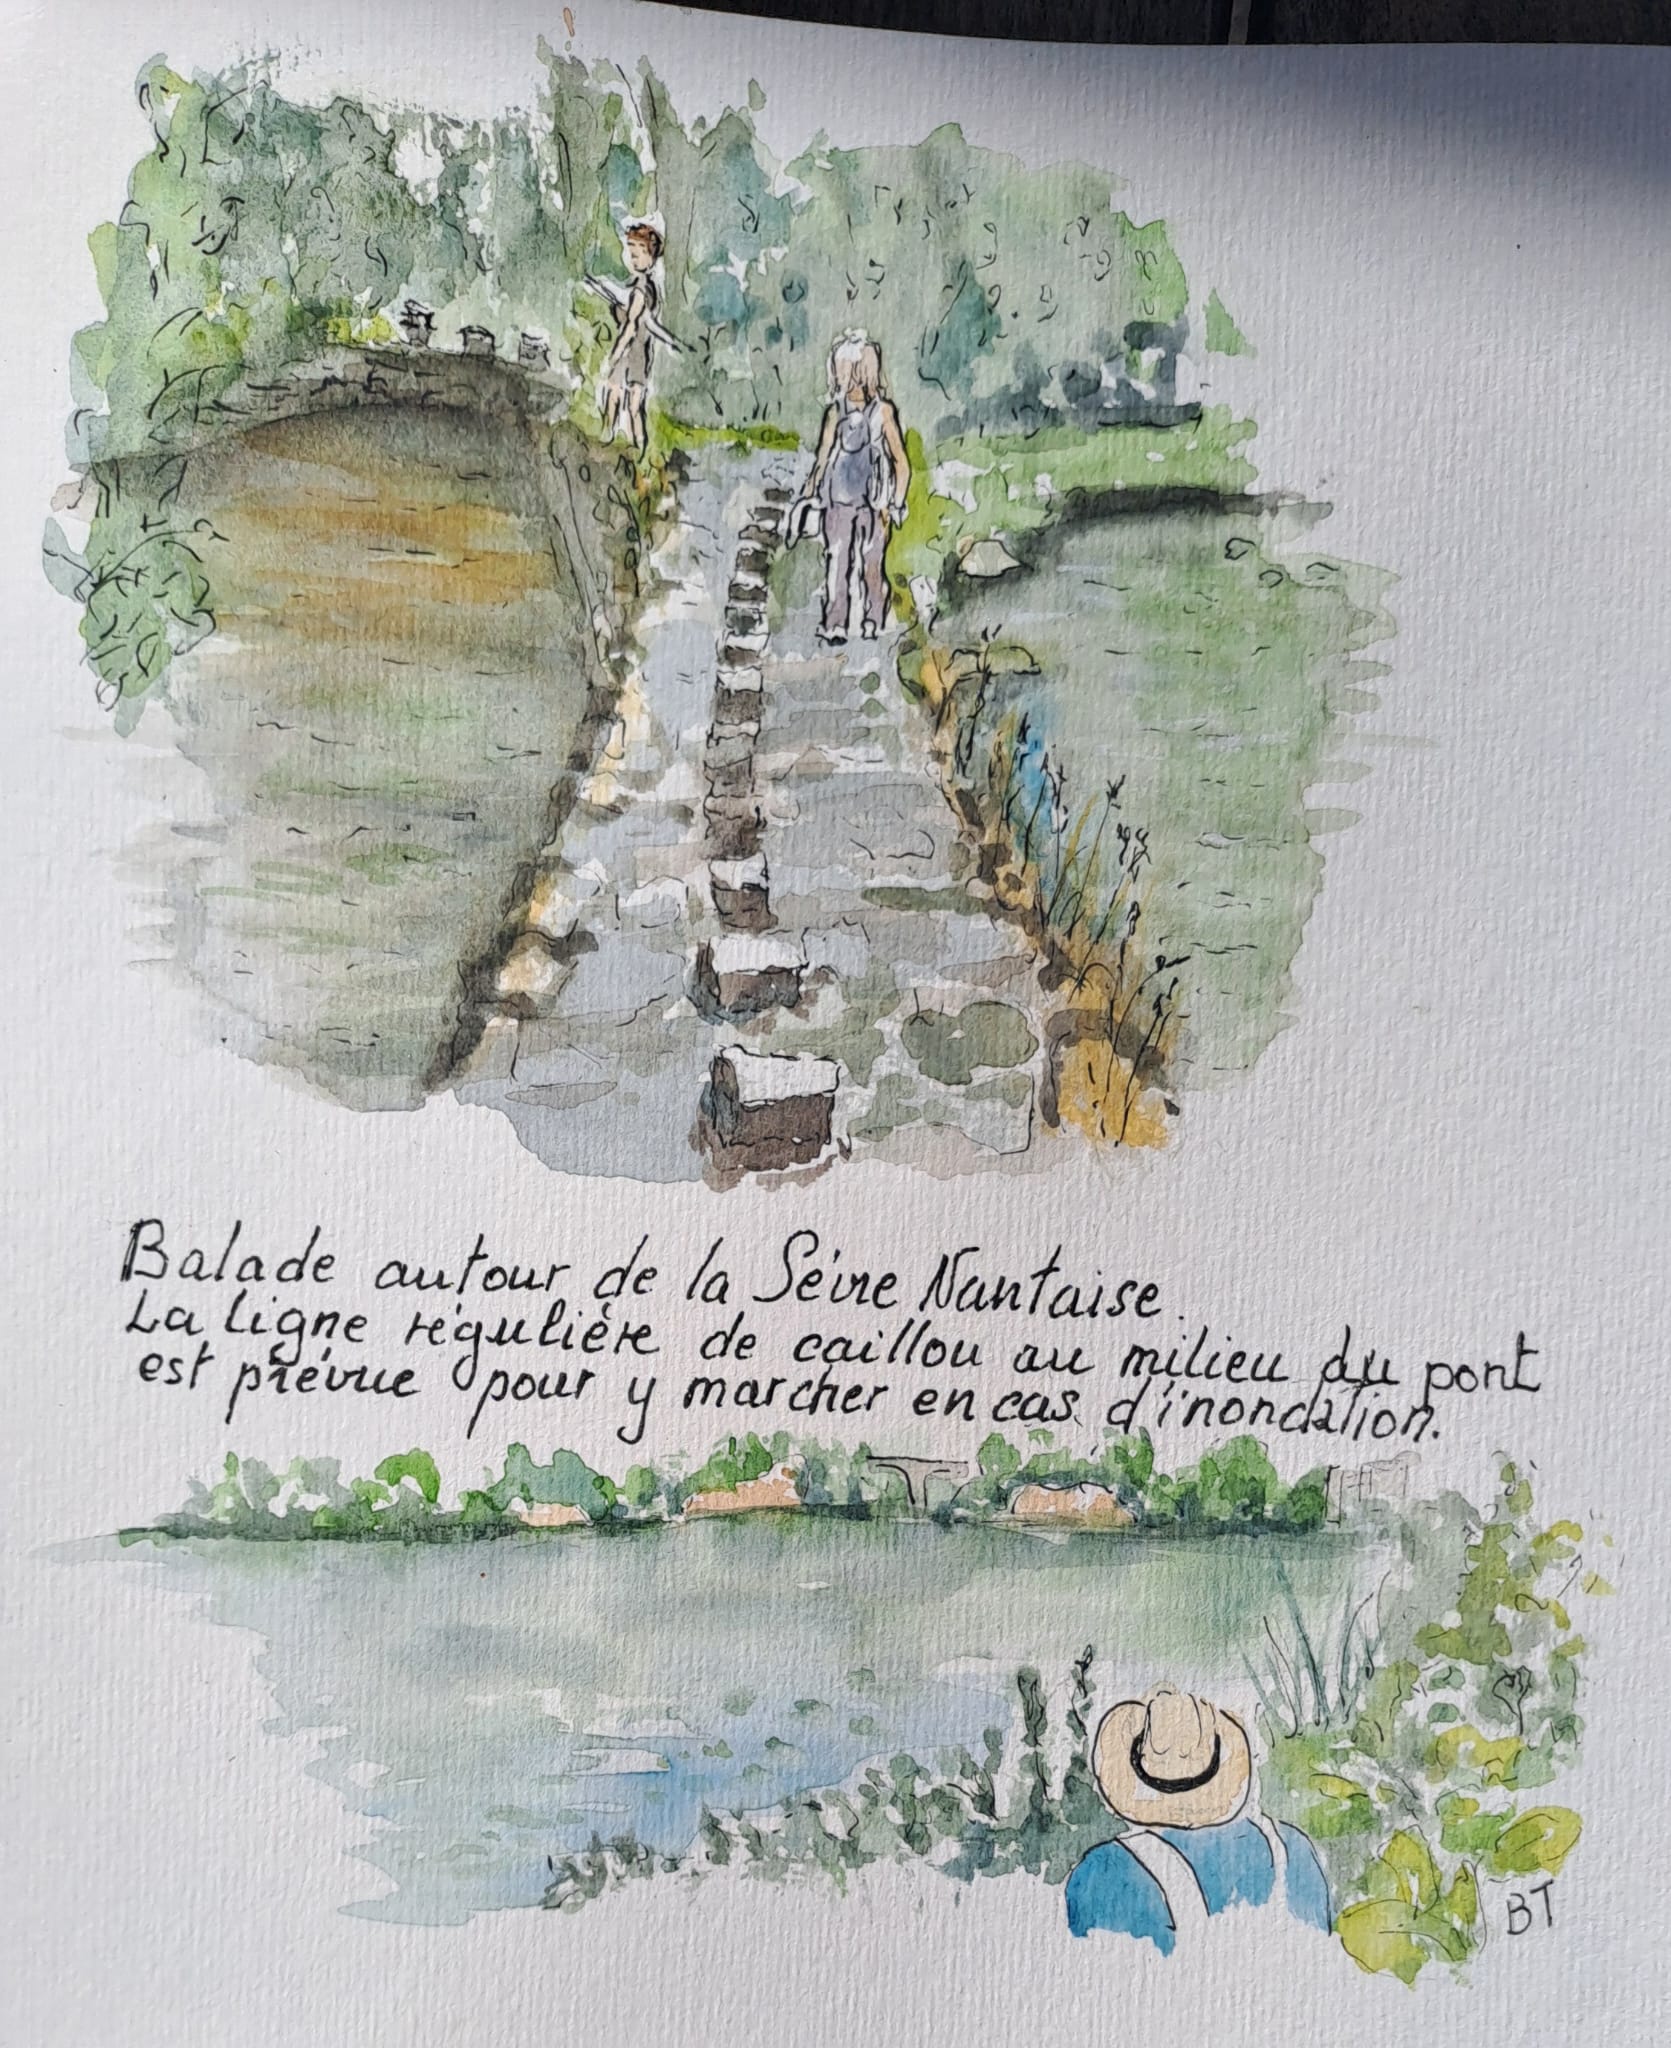 Balade autour de la Séivre Nantaise.
La ligne régulière de caillou au milieu du pont
est prévue pour y marcher en cas d'inondation.
BT